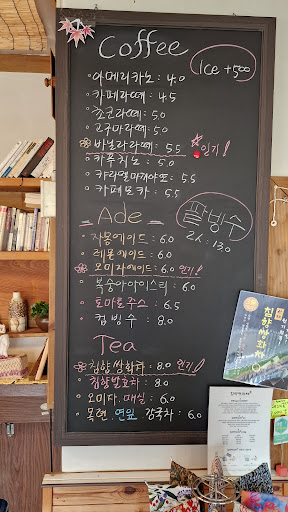 Coffee
Ice +500
아메리카노 : 4.0
카페라떼 : 4.5
초코라떼 : 5.0
고구마라떼 : 5.0
바닐라라떼 : 5.5 인기!
카푸치노 : 5.0
카라멜마끼아또 : 5.5
카페모카 : 5.5
Ade
팥빙수
2人 : 13.0
자몽에이드 : 6.0
레몬에이드 : 6.0
오미자에이드 : 6.0 인기!
복숭아아이스티 : 6.0
토마토주스 : 6.5
컵빙수 : 8.0
Tea
침향쌍화차 : 8.0 인기!
침향발효차 : 8.0
오미자. 매실 : 6.0
목련. 연잎. 강국차 : 6.0
침향쌍화차